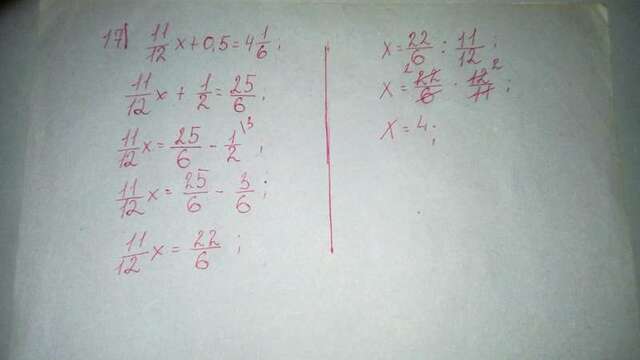 17) 11/12 x + 0,5 = 4 1/6 ;
11/12 x + 1/2 = 25/6 ;
11/12 x = 25/6 - 1/2 \3 ;
11/12 x = 25/6 - 3/6 ;
11/12 x = 22/6 ;
x = 22/6 : 11/12 ;
x = 2 22/6 · 12/11 2 ;
x = 4 ;